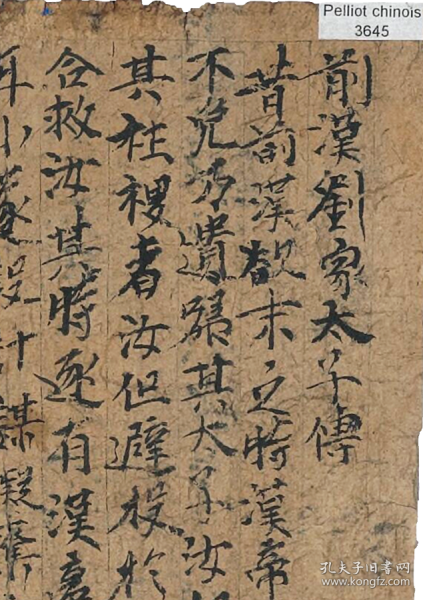 Pelliot chinois
3645
前漢劉家太子傳
昔前漢欲末之時漢帝
不免乃遺囑其太子汝
其社稷者汝但避投於
合救汝其時遂有漢
年小遂設計謀
孔夫子旧书网
www.kongfz.com